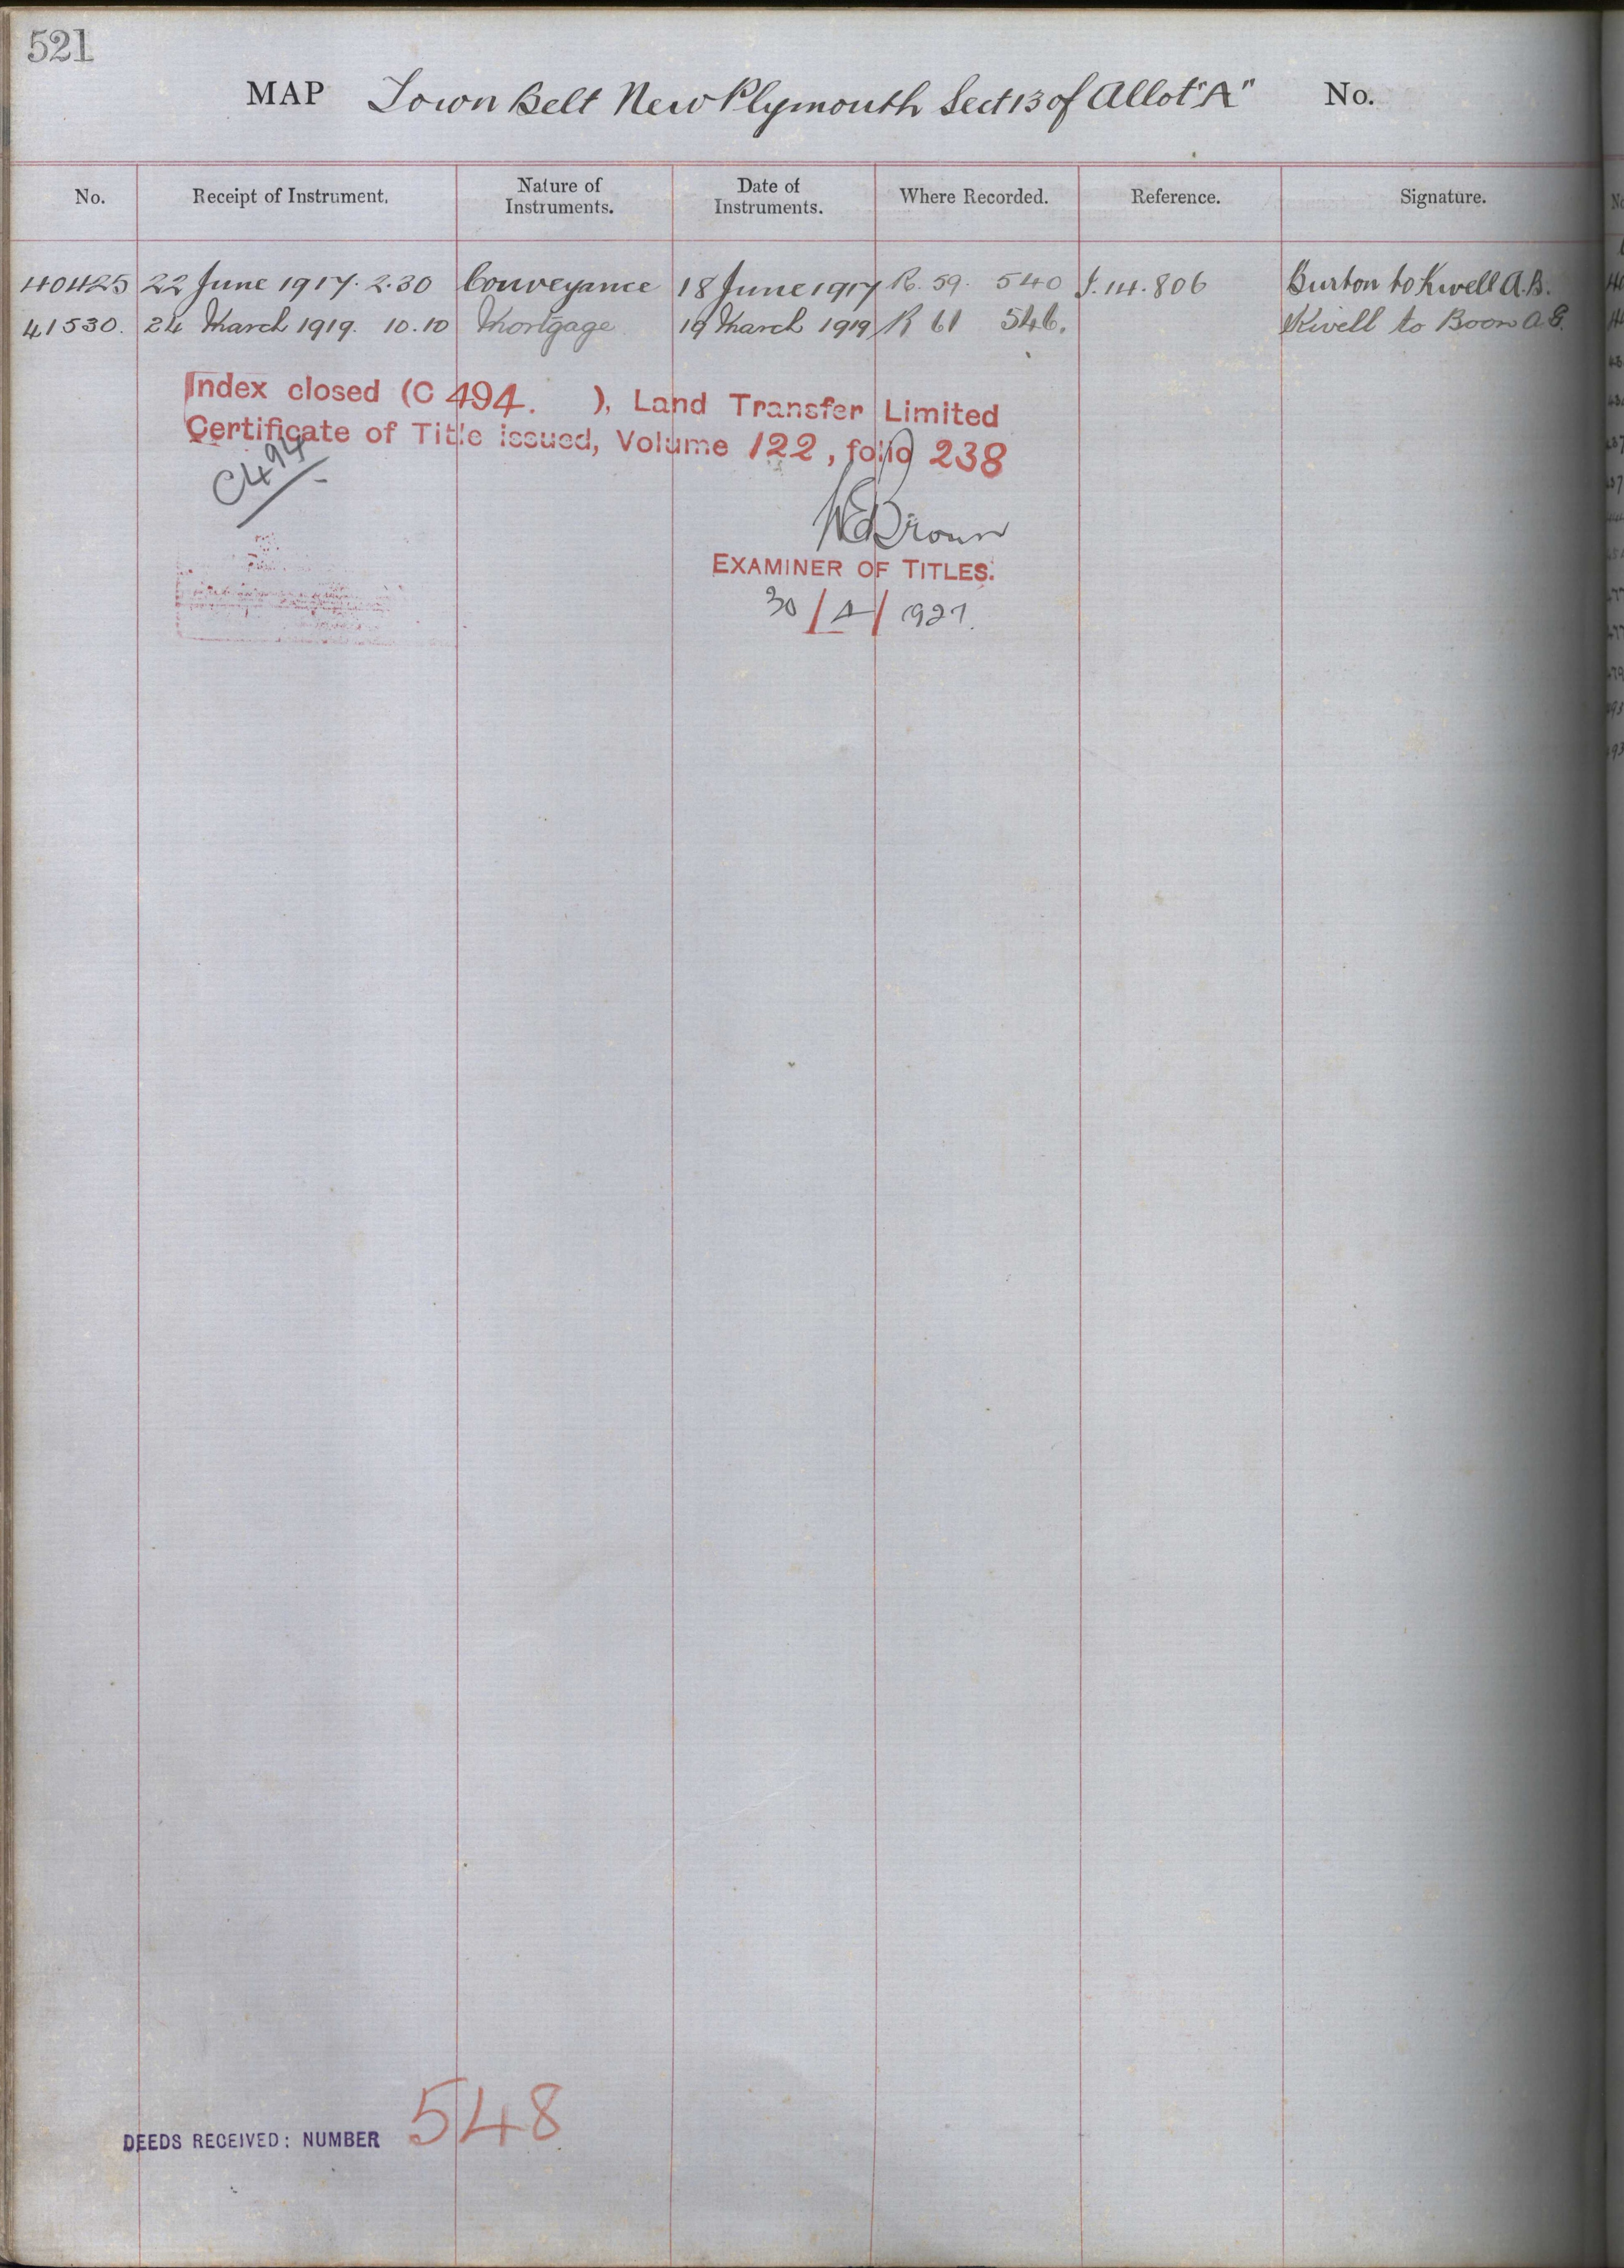 521
MAP Town Belt New Plymouth Sect 13 of Allot "A" No.
No. Receipt of Instrument. Nature of Instruments. Date of Instruments. Where Recorded. Reference. Signature.
40425 22 June 1917. 2.30 Conveyance 18 June 1917 R. 59. 540 I. 14. 806 Burton to Kivell A.B.
41530. 24 March 1919. 10.10 Mortgage 19 March 1919 R 61 546. Kivell to Boon
Index closed (C 494. ), Land Transfer Limited
Certificate of Title issued, Volume 122, folio 238
C494
Brown
EXAMINER OF TITLES.
30/4/1927.
DEEDS RECEIVED: NUMBER 548